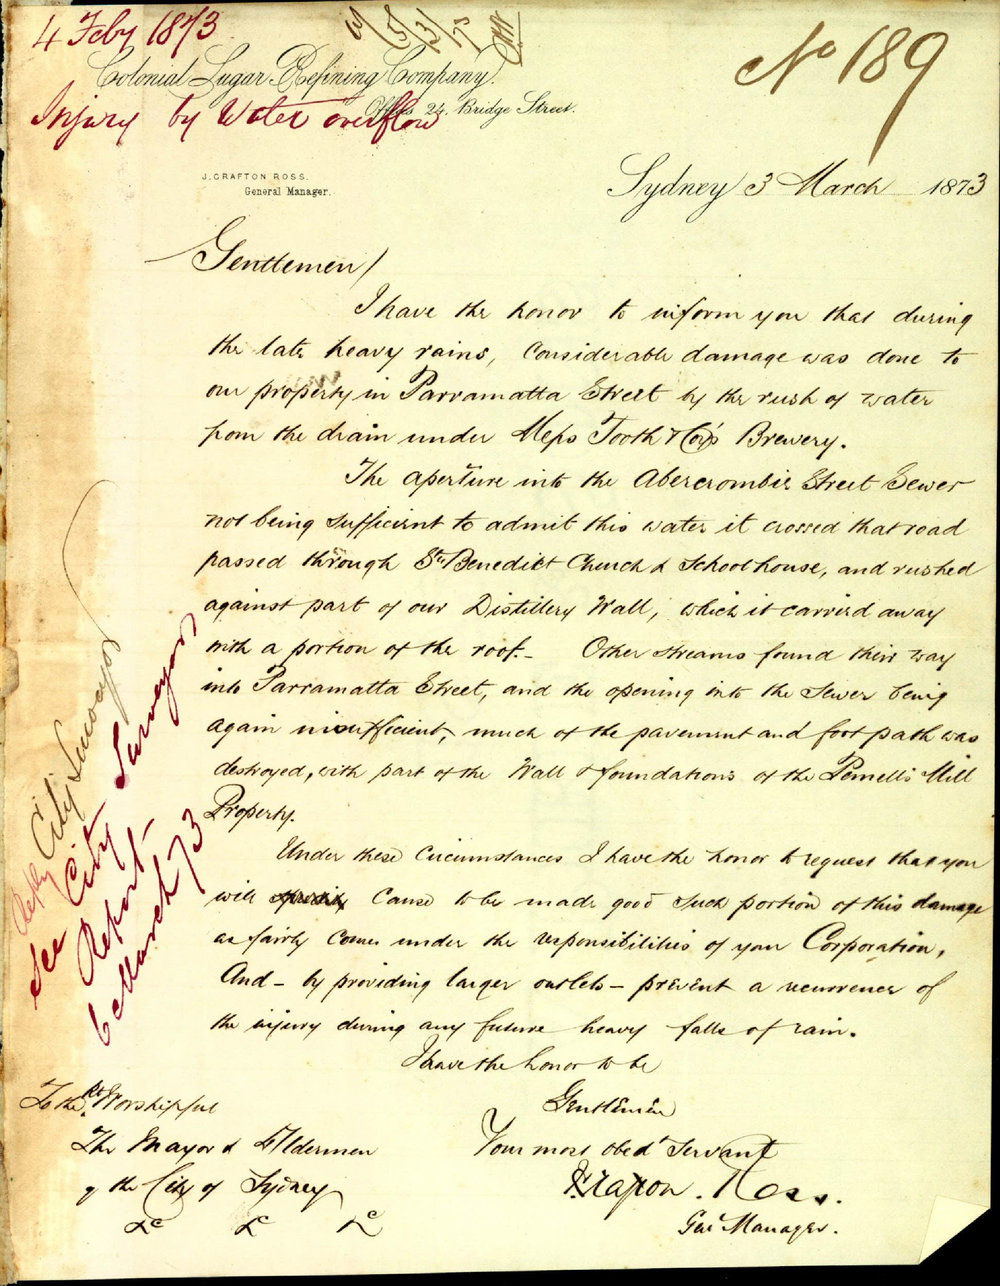 4 Feby 1873
No 189
Colonial Sugar Refining Company.
Offices 24, Bridge Street.
Injury by Water overflow
J. GRAFTON ROSS.
General Manager.
Sydney 3 March 1873
Gentlemen/
I have the honor to inform you that during
the late heavy rains, considerable damage was done to
our property in Parramatta Street by the rush of water
from the drain under Messrs Tooth & Co's Brewery.
The aperture into the Abercrombie Street Sewer
not being sufficient to admit this water it crossed that road
passed through St. Benedict Church & Schoolhouse, and rushed
against part of our Distillery Wall, which it carried away
with a portion of the roof. - Other streams found their way
into Parramatta Street, and the opening into the Sewer being
again insufficient, much of the pavement and foot path was
destroyed, with part of the Wall & foundations of the Pemells Mill
Property.
Under these circumstances I have the honor to request that you
will cause to be made good such portion of this damage
as fairly comes under the responsibilities of your Corporation,
And - by providing larger outlets - prevent a recurrence of
the injury during any future heavy falls of rain.
I have the honor to be
Gentlemen
Your most obedt servant
J Grafton Ross.
Genl Manager.
To the Rt. Worshipful
The Mayor & Aldermen
of the City of Sydney
&c &c &c
Refer City Surveyor
See City Surveyors
Report -
6 March 73